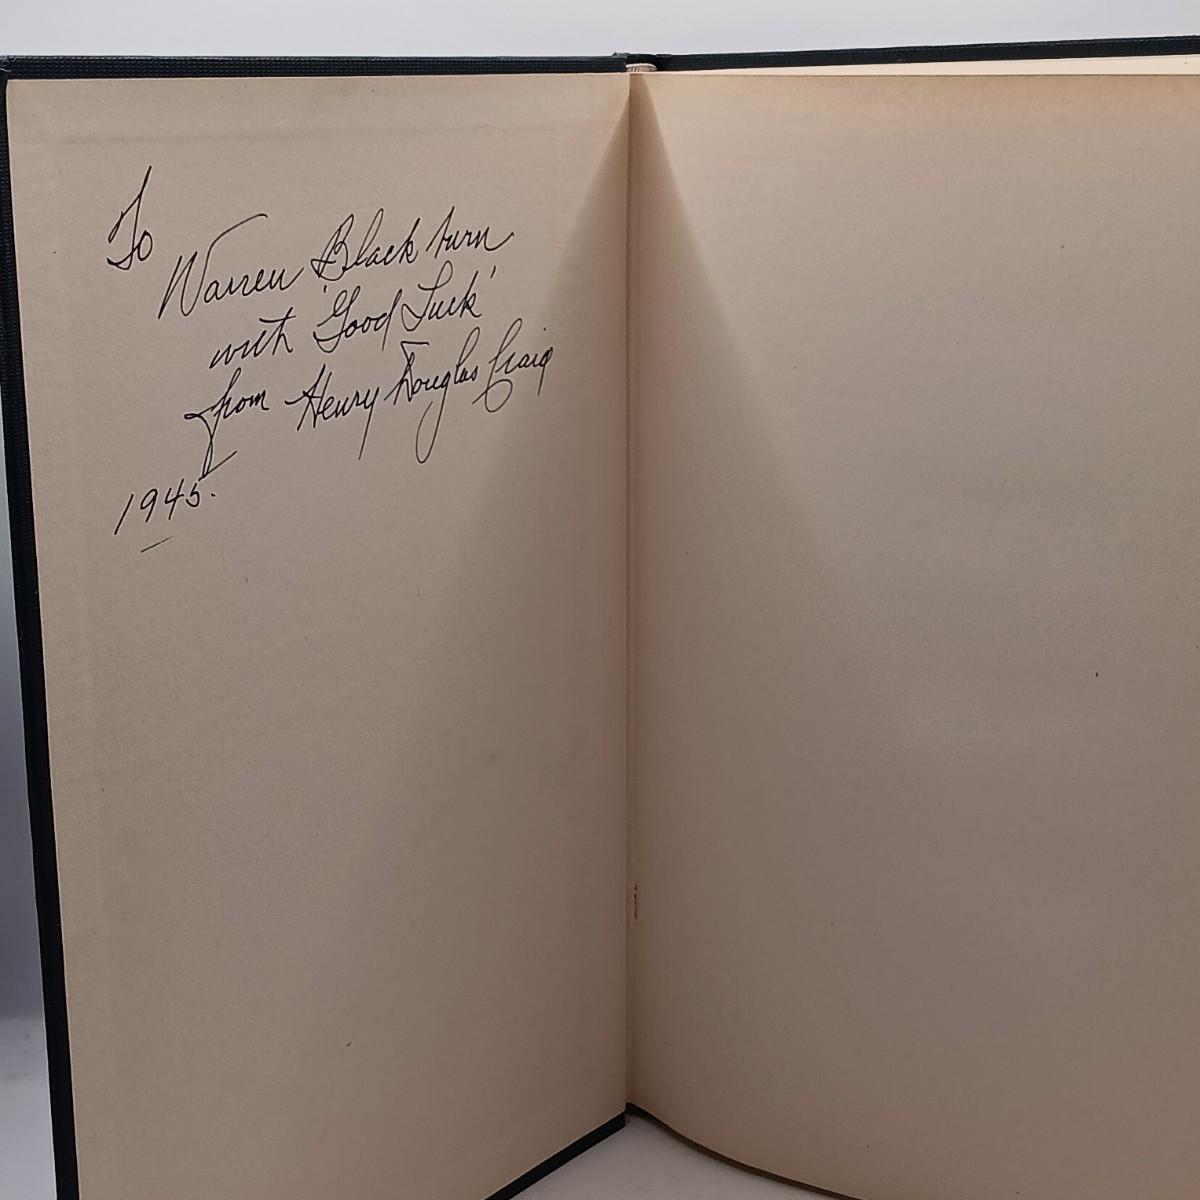 To
Warren Blackburn
with 'Good Luck'
from Henry Douglas Craig
1945.